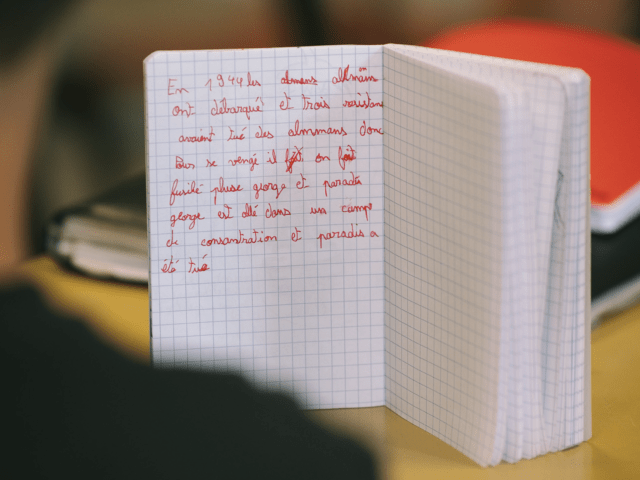 En 1944 les almans allmain
ont débarqué et trois resistan
avaient tué des almmans donc
Pour se vengé il on
fusilé pluse george et paradis
george est allé dans un camp
de consantration et paradis a
été tué